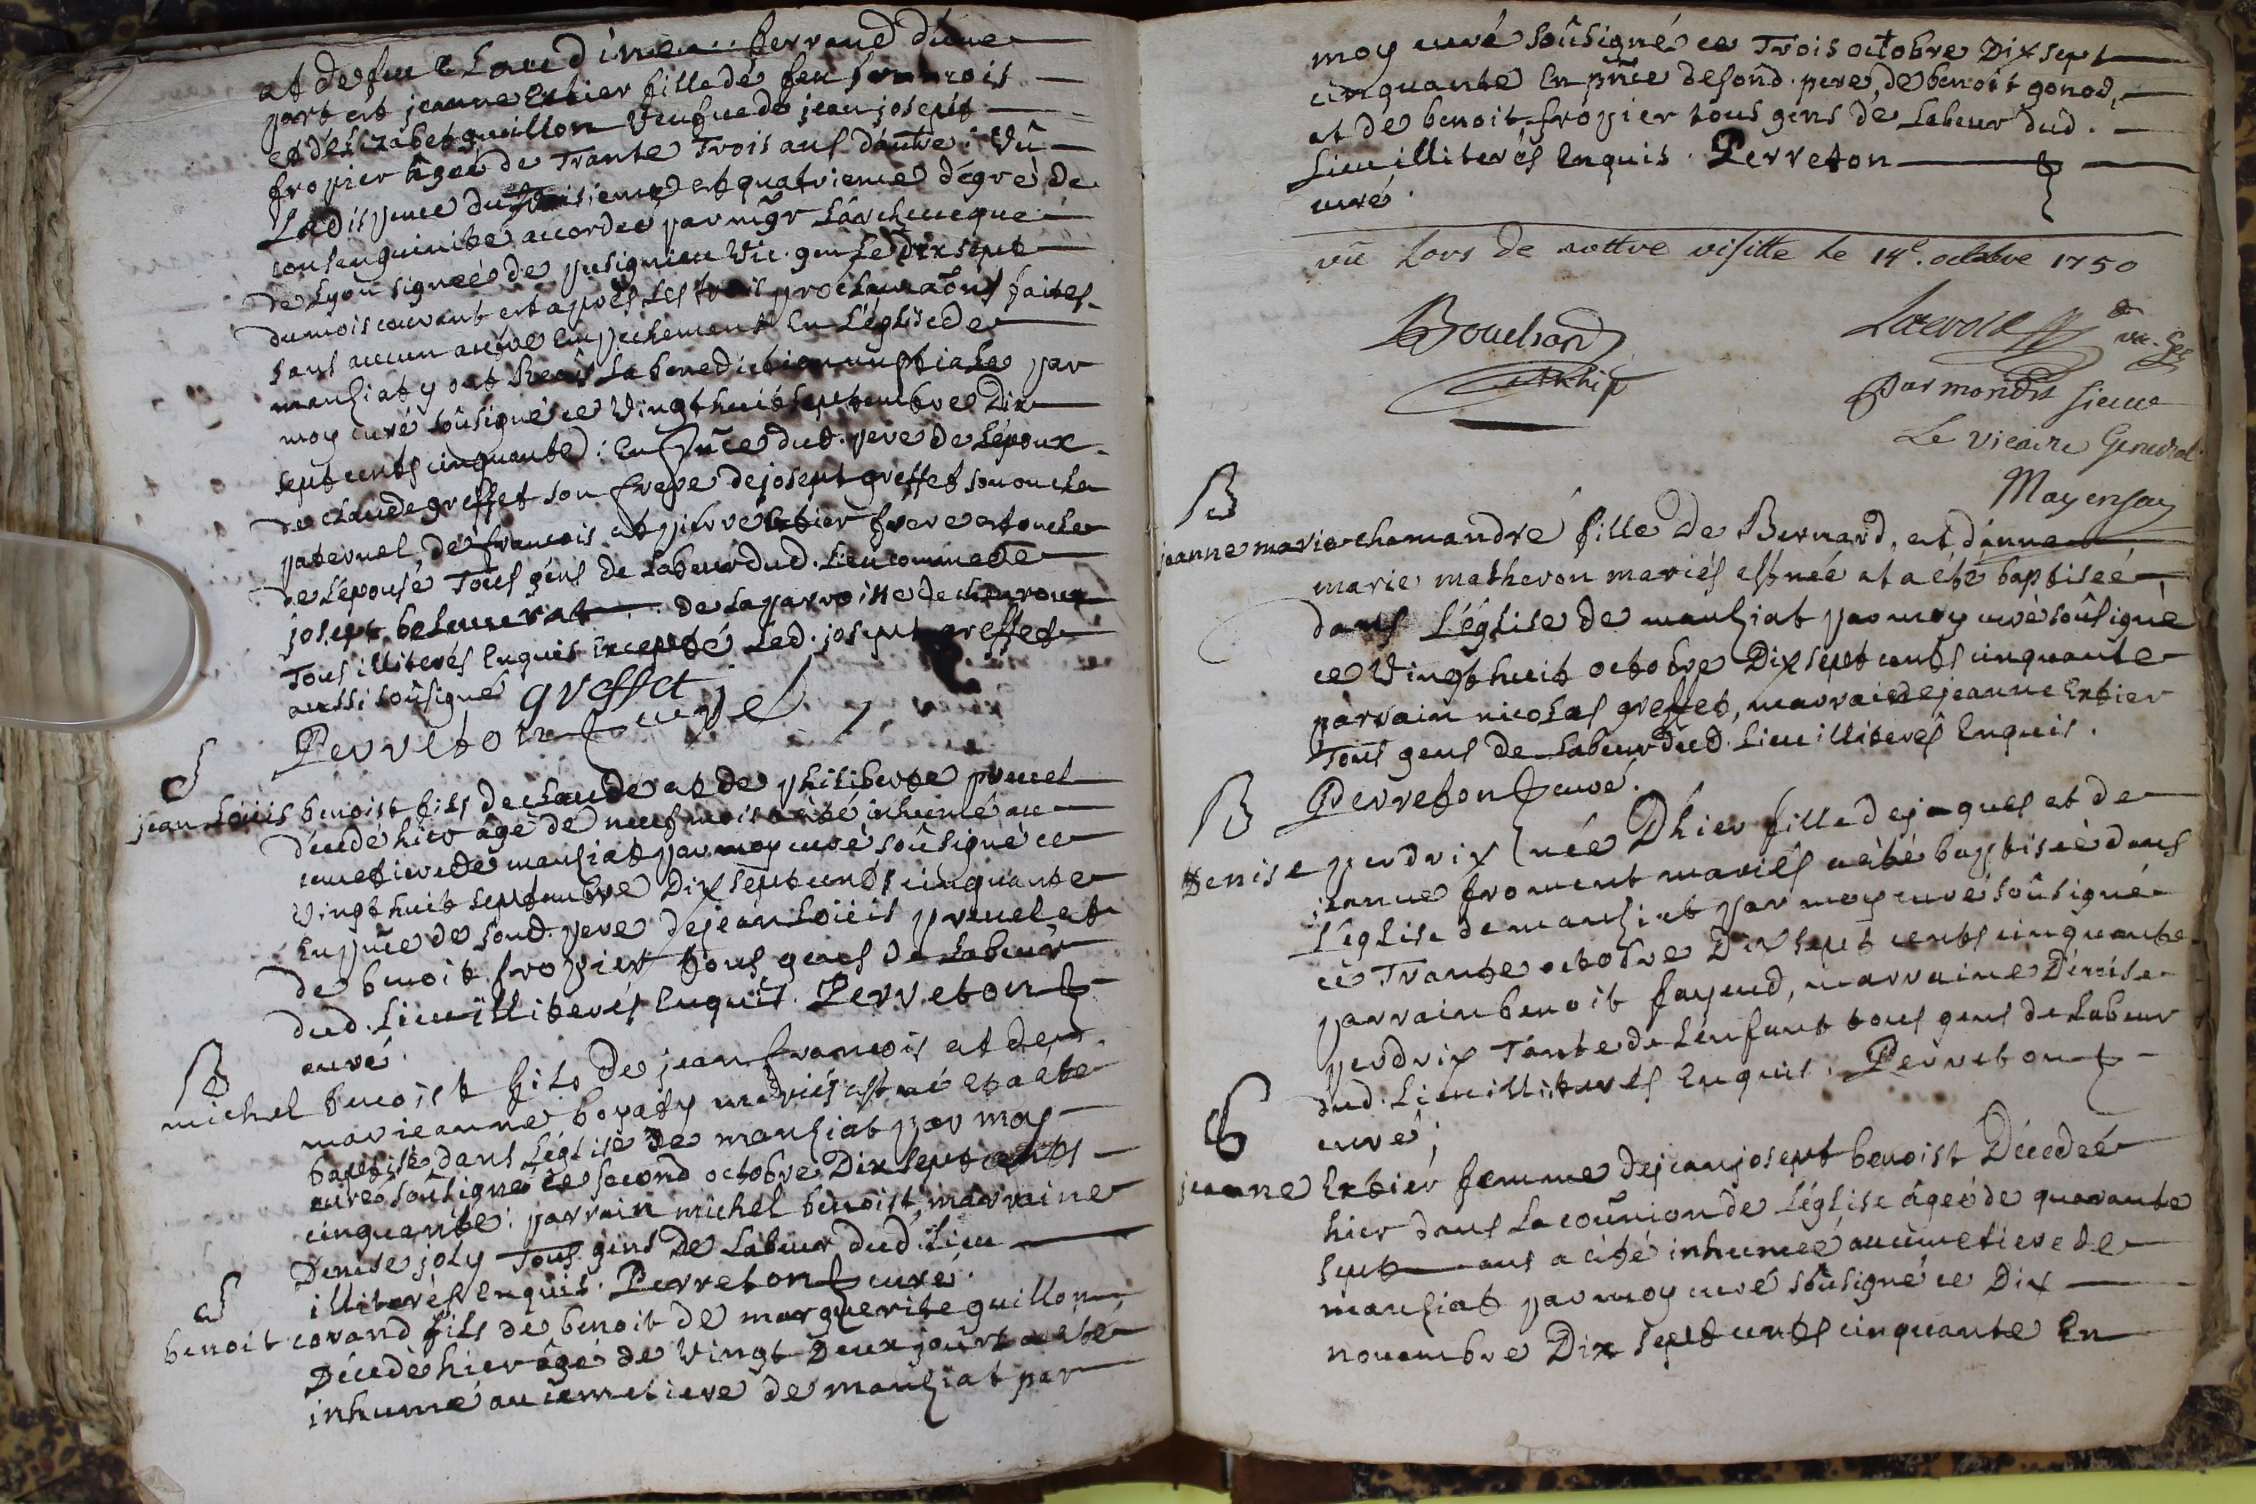 et de feu Claudine ferrand d'une
part et jeanne Extier fille de feu francois
et d'Elizabet guillon Veufve de jean josept
fropier âgeé de Trante Trois ans d'autre : Vû
La dispence du Troisieme et quatrieme dégré de
consenguinité accordeé par mgr L'archeveque
de Lyon signeé de pusignieu Vic. gen Le dix sept
du mois courant et apprés Les trois proclamaõns faites
sans aucun autre Empechement En L'église de
manziat y ont Receû La benediction nuptiale par
moy curé soûsigné ce Vingt huit septembre Dix
sept cents cinquante : En pñce dud. pere de L'époux
de claude greffet son frere de josept greffet son oncle
paternel de francois et pierre Extier frere et oncle
de L'épouse Tous gens de Labeur dud. Lieu comme de
josept beleurat de La parroisse de chevroux
Tous illiterés Enquis Excepté Led. josept greffet
aussi soûsigné greffet
Perreton curé
S
jean Loüis benoist fils de claude et de philiberte pruel
décedé hier âgé de neuf mois a été inhumé au
cimetiere de manziat par moy curé soûsigné ce
Vingt huit septembre Dix sept cents cinquante
En pñce de sond. pere de jean Loüis pruel et
de benoit fropier tous gens de Labeur
dud. Lieu illiterés Enquis. Perreton
curé.
B
michel benoist fils de jean francois et de
marieanne boyaty mariés est né et a eté
baptisé dans L'église de manziat par moy
curé soûsigné ce second octobre Dix sept cents
cinquante : parrain michel benoist, marraine
Denise joly Tous gens de Labeur dud. Lieu
illiterés Enquis. Perreton curé.
S
benoit corand fils de benoit de marguerite guillon,
Décedé hier âgé de Vingt Deux jours a eté
inhumé au cimetiere de manziat par
moy curé soûsigné ce Trois octobre Dix sept
cinquante En pñce de sond. pere, de benoit gonod,
et de benoit fropier tous gens de Labeur dud.
Lieu illiterés Enquis. Perreton
curé.
vû Lors de nottre visitte le 14e. octobre 1750
Bouchard
archip
vic. gen
par mondit sieur
Le vicaire General
B
jeanne marie chamandré fille de Bernard, et d'anne
marie matheron mariés est née et a été baptiseé
dans L'église de manziat par moy curé soûsigné
ce Vingt huit octobre Dix sept cents cinquante
parrain nicolas greffet, marraine jeanne Extier
Tous gens de Labeur dud. Lieu illiterés Enquis.
Perreton curé.
B
Denise perdrix née D'hier fille de jaques et de
jeanne froment mariés a été baptiseé dans
L'église de manziat par moy curé soûsigné
ce Trante octobre Dix sept cents cinquante
parrain benoit fayend, marraine Denise
perdrix Tante de L'enfant tous gens de Labeur
dud. Lieu illiterés Enquis. Perreton
curé;
S
jeanne Extier femme de jean josept benoist Décedeé
hier dans La coṁunion de L'église âgeé de quarante
sept ans a eté inhumeé au cimetiere de
manziat par moy curé soûsigné ce Dix
novembre Dix sept cents cinquante En